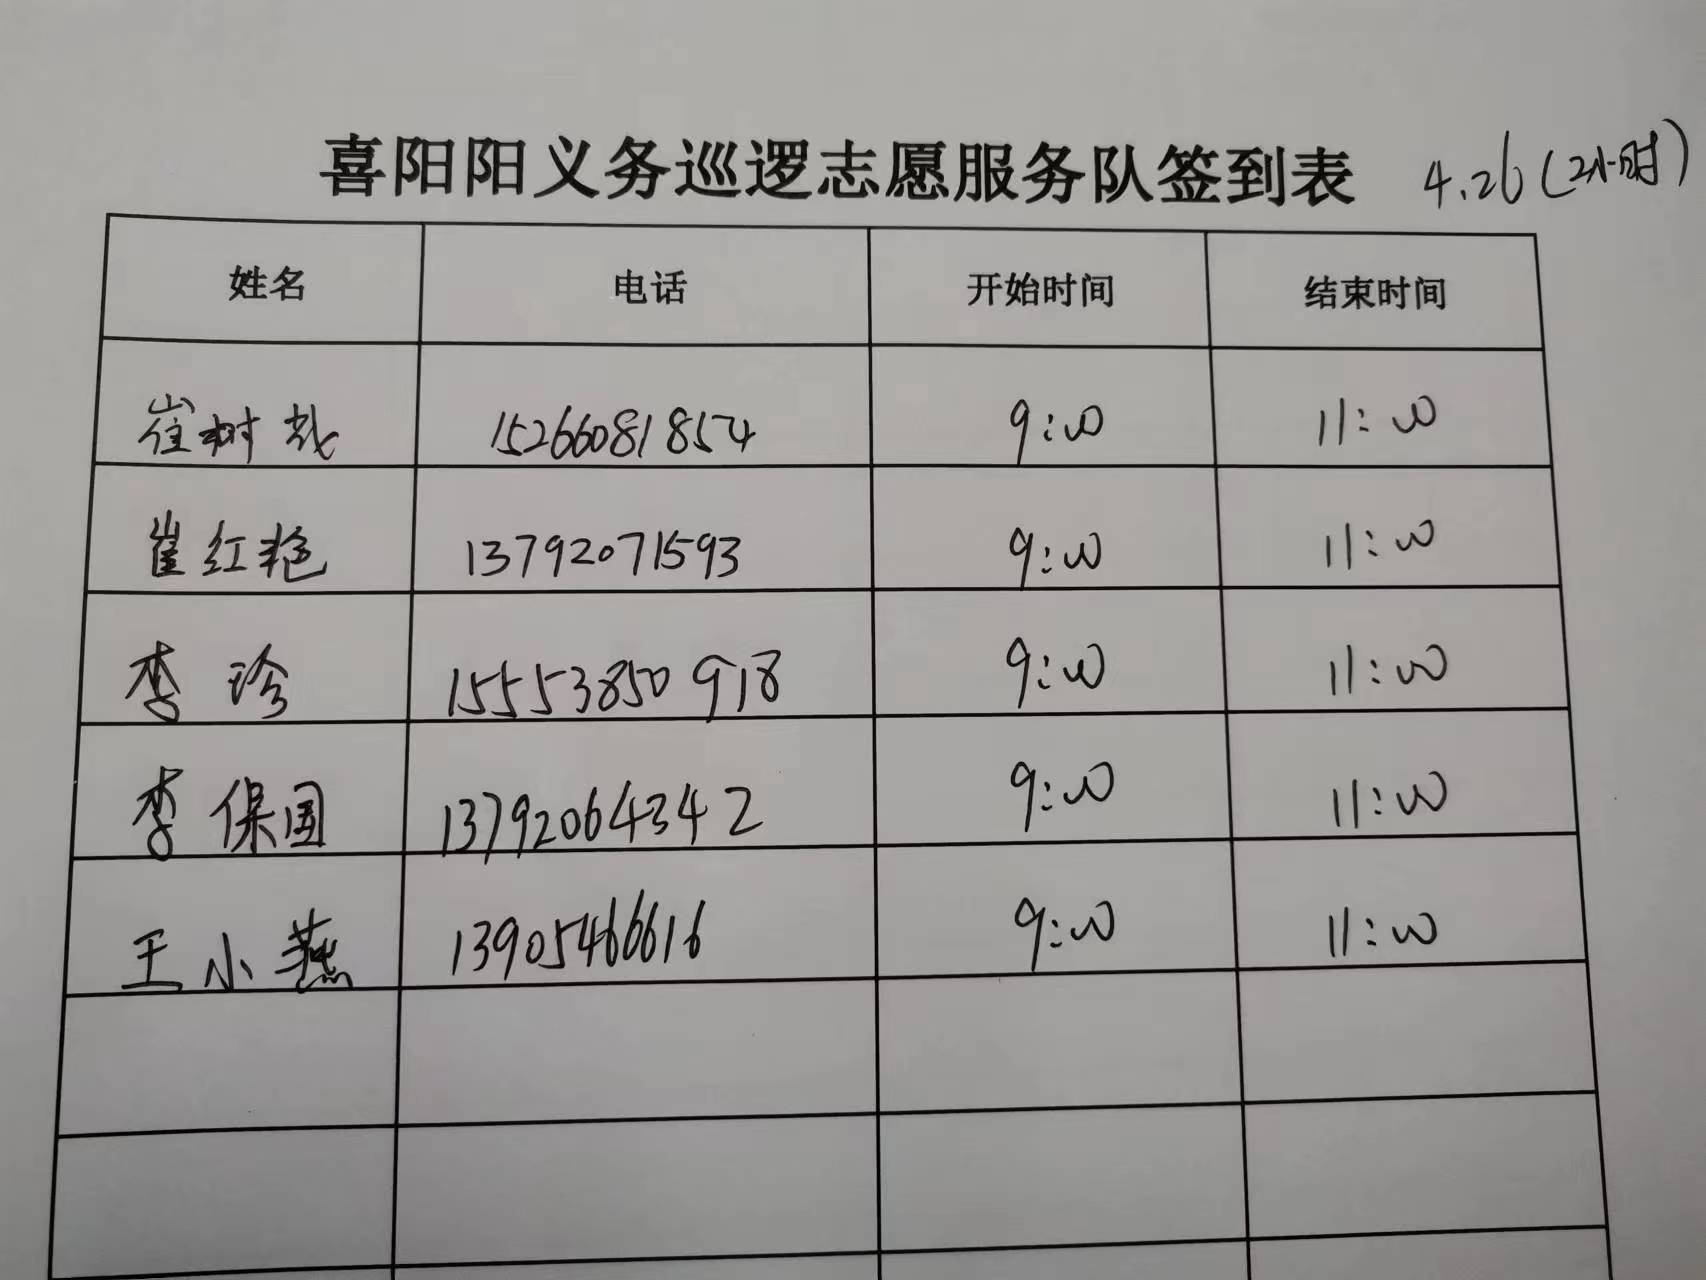 喜阳阳义务巡逻志愿服务队签到表 4.26(2小时)
姓名 电话 开始时间 结束时间
崔树哉 15266081854 9:00 11:00
崔红艳 13792071593 9:00 11:00
李珍 15553850918 9:00 11:00
李保国 13792064342 9:00 11:00
王小燕 13905466616 9:00 11:00